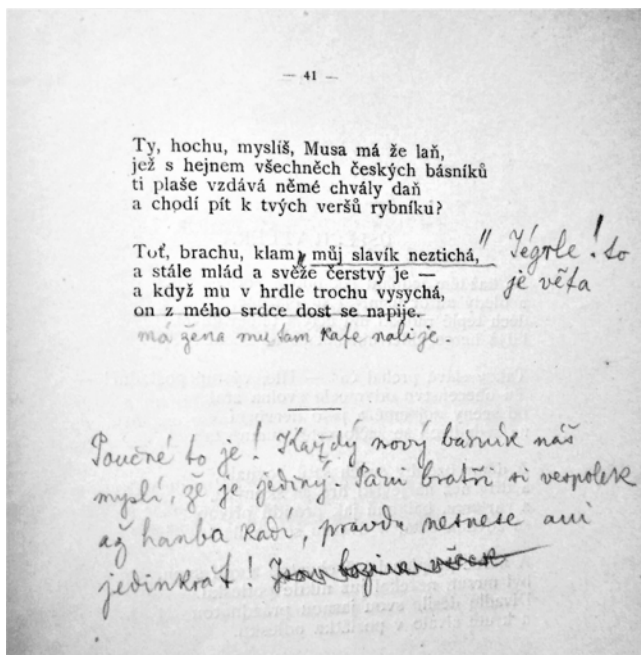 — 41 —
Ty, hochu, myslíš, Musa má že laň,
jež s hejnem všechněch českých básníků
ti plaše vzdává němé chvály daň
a chodí pít k tvých veršů rybníku?
Toť, brachu, klam, můj slavík neztichá," Jégrle! to
a stále mlád a svěže čerstvý je — je věta
a když mu v hrdle trochu vysychá,
on z mého srdce dost se napije.
má žena mu tam kafe nalije.
Poučné to je! Každý nový básník náš
myslí, že je jediný. Páni bratří si vespolek
až hanba kadí, pravdu nesnese ani
jedinkrát!